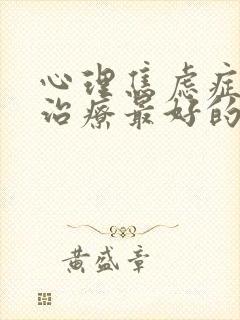 心理焦虑症
治疗最好的
黄盛章